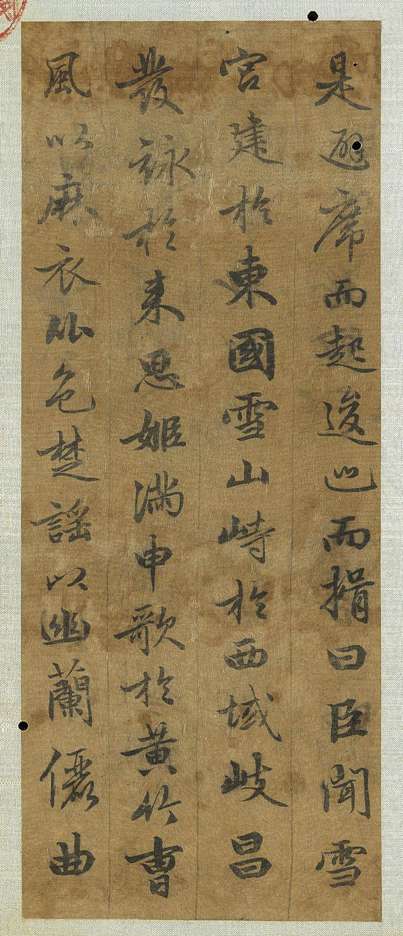 是避席而起逡巡而揖曰臣聞雪
宮建於東國雪山峙於西域岐昌
發詠於来思姬滿申歌於黃竹曹
風以麻衣比色楚謡以幽蘭儷曲